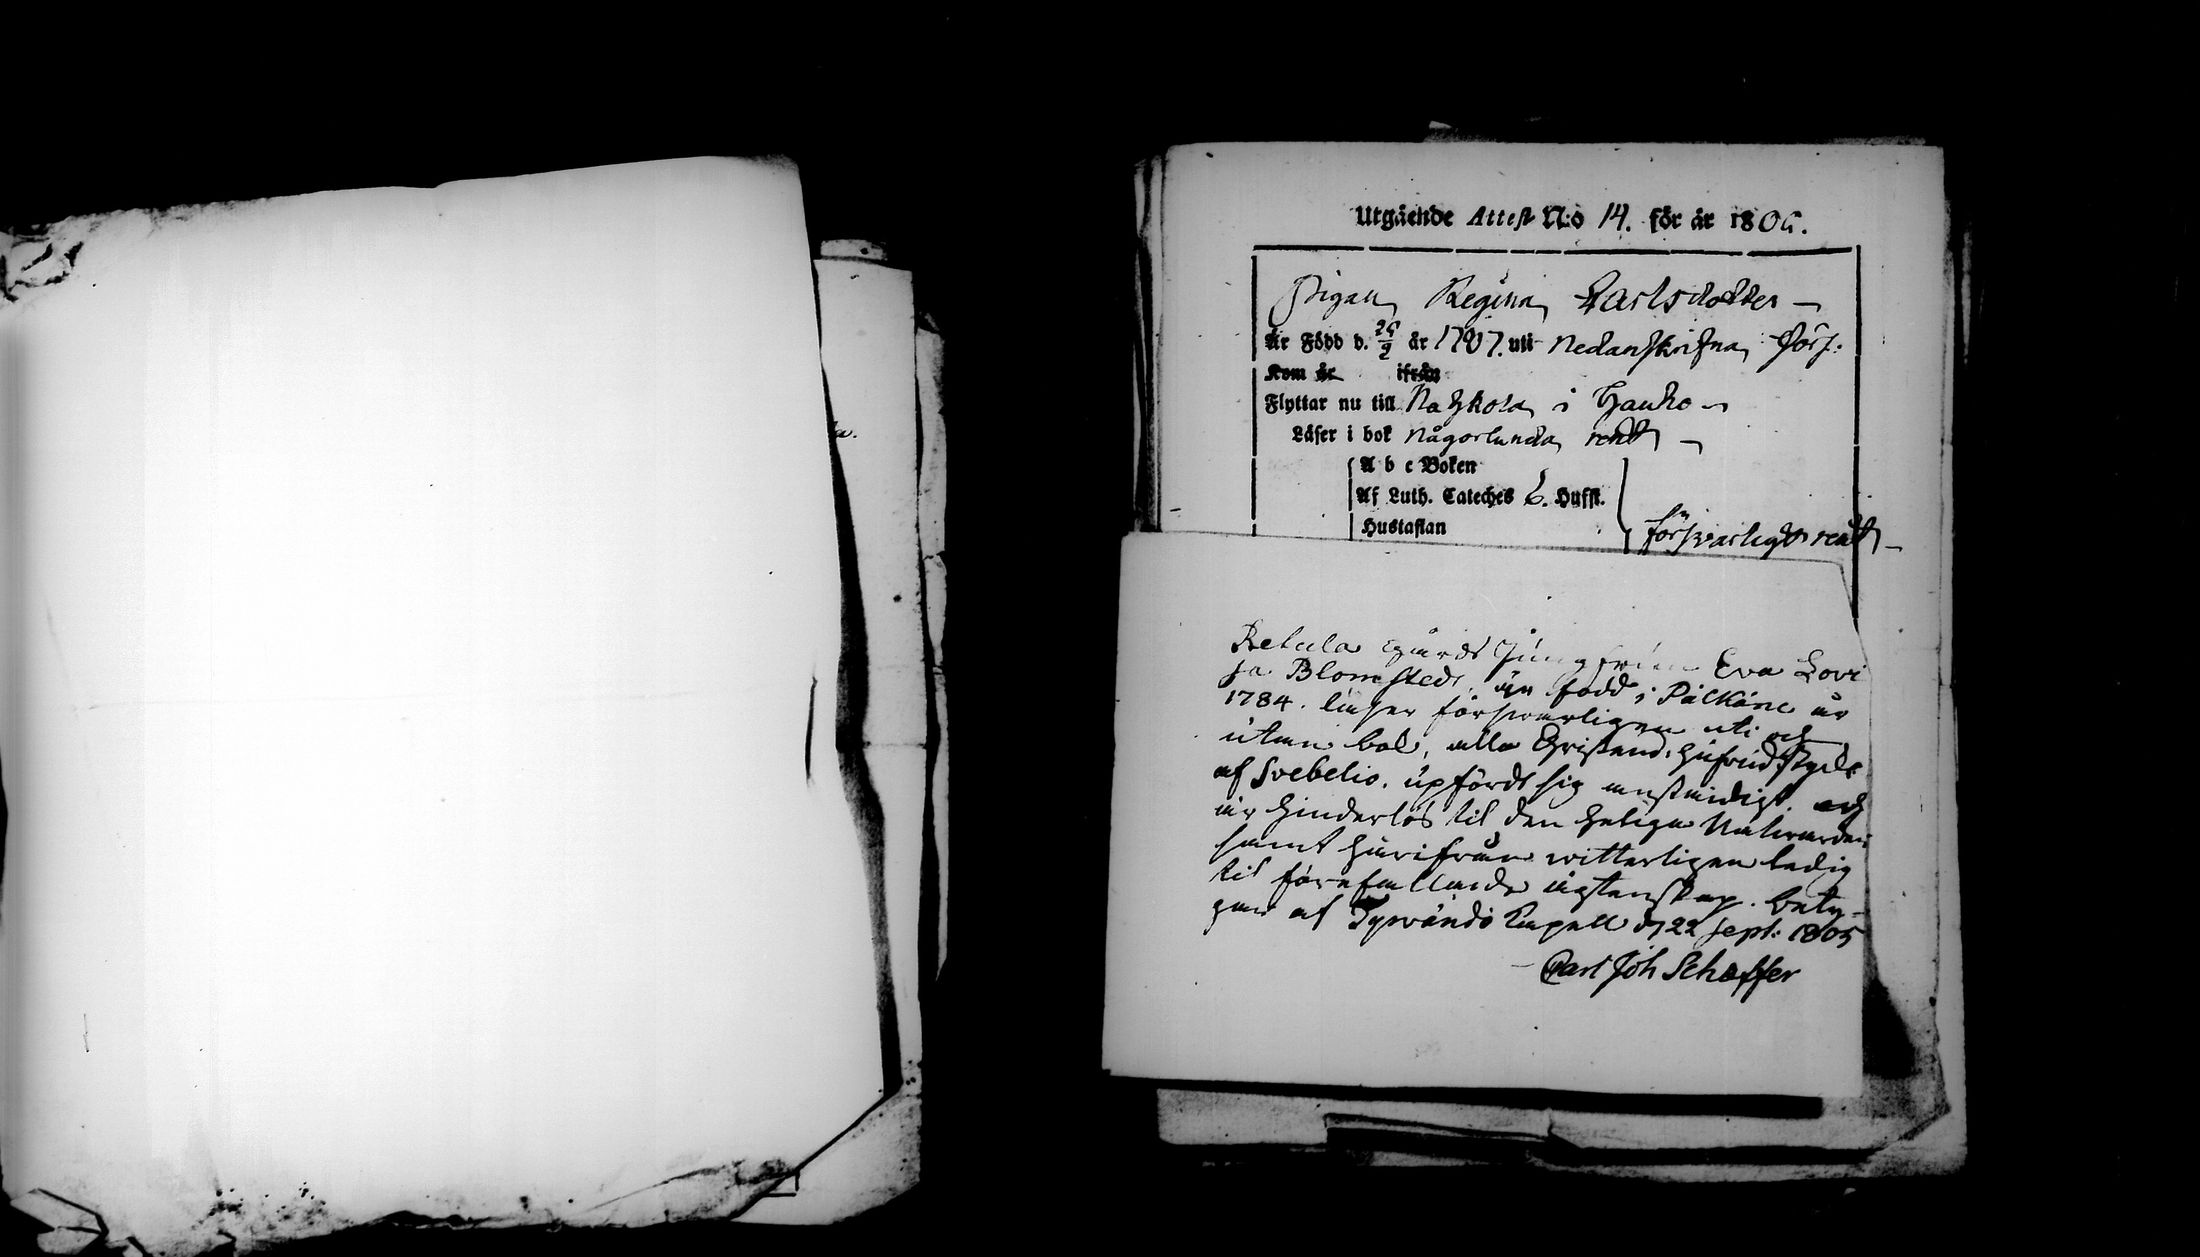 Utgående Attest N:o 14. för år 180
Pigan Regina Carlsdotter
Är Född d. år 1787. uti Nedanskrifna förs:
Kom år ifrån
Flyttar nu till i Hauho
Läser i bok någorlunda rent
A b c Boken
Af Luth. Cateches 6. Hufst.
Hustaflan
försvarligt rent
Retula gårds Jungfrun Eva Lovi
sa Blomstedt, är född i Pälkäne år
1784. läser försvarligen uti och
utan bok, alla Christend: hufvudstycke
af Svebelio. upfördt sig anständigt. och
är hinderlös til den heliga Nattvarden
samt härifrån witterligen ledig
til förefallande ägtenskap. bety-
gar af Tyrwändö Capell d 22 Sept: 1805
Carl Joh Schæffer